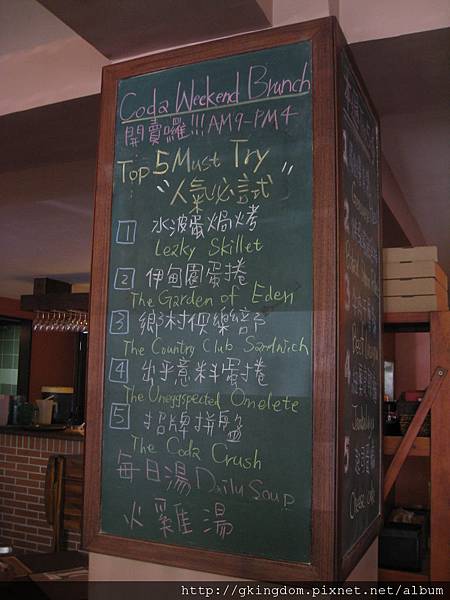 Coda Weekend Brunch
開賣囉!!! AM9-PM4
Top 5 Must Try
"人氣必試"
1 水波蛋焗烤
Lezky Skillet
2 伊甸園蛋捲
The Garden of Eden
3 鄉村俱樂部
The Country Club Sandwich
4 出乎意料蛋捲
The Uneggspected Omelete
5 招牌拼盤
The Coda Crush
每日湯 Daily Soup
火雞湯
http://gkingdom.pixnet.net/album